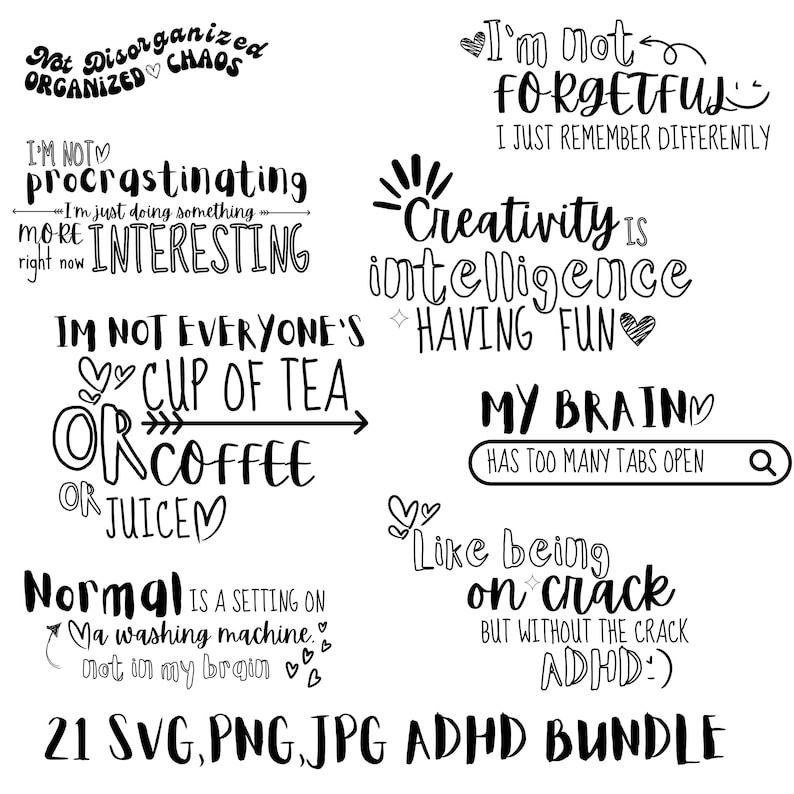 Not Disorganized
ORGANiZED CHAOS
I'm not
FORGETFUL
I JUST REMEMBER DIFFERENTLY
I'M NOT
procrastinating
I'm just doing something
MORE
right now INTERESTING
Creativity IS
intelligence
HAVING FUN
IM NOT EVERYONE'S
CUP OF TEA
OR COFFEE
OR JUICE
MY BRAIN
HAS TOO MANY TABS OPEN
Like being
on crack
BUT WITHOUT THE CRACK
ADHD:)
Normal IS A SETTING ON
a washing machine.
not in my brain
21 SVG,PNG,JPG ADHD BUNDLE